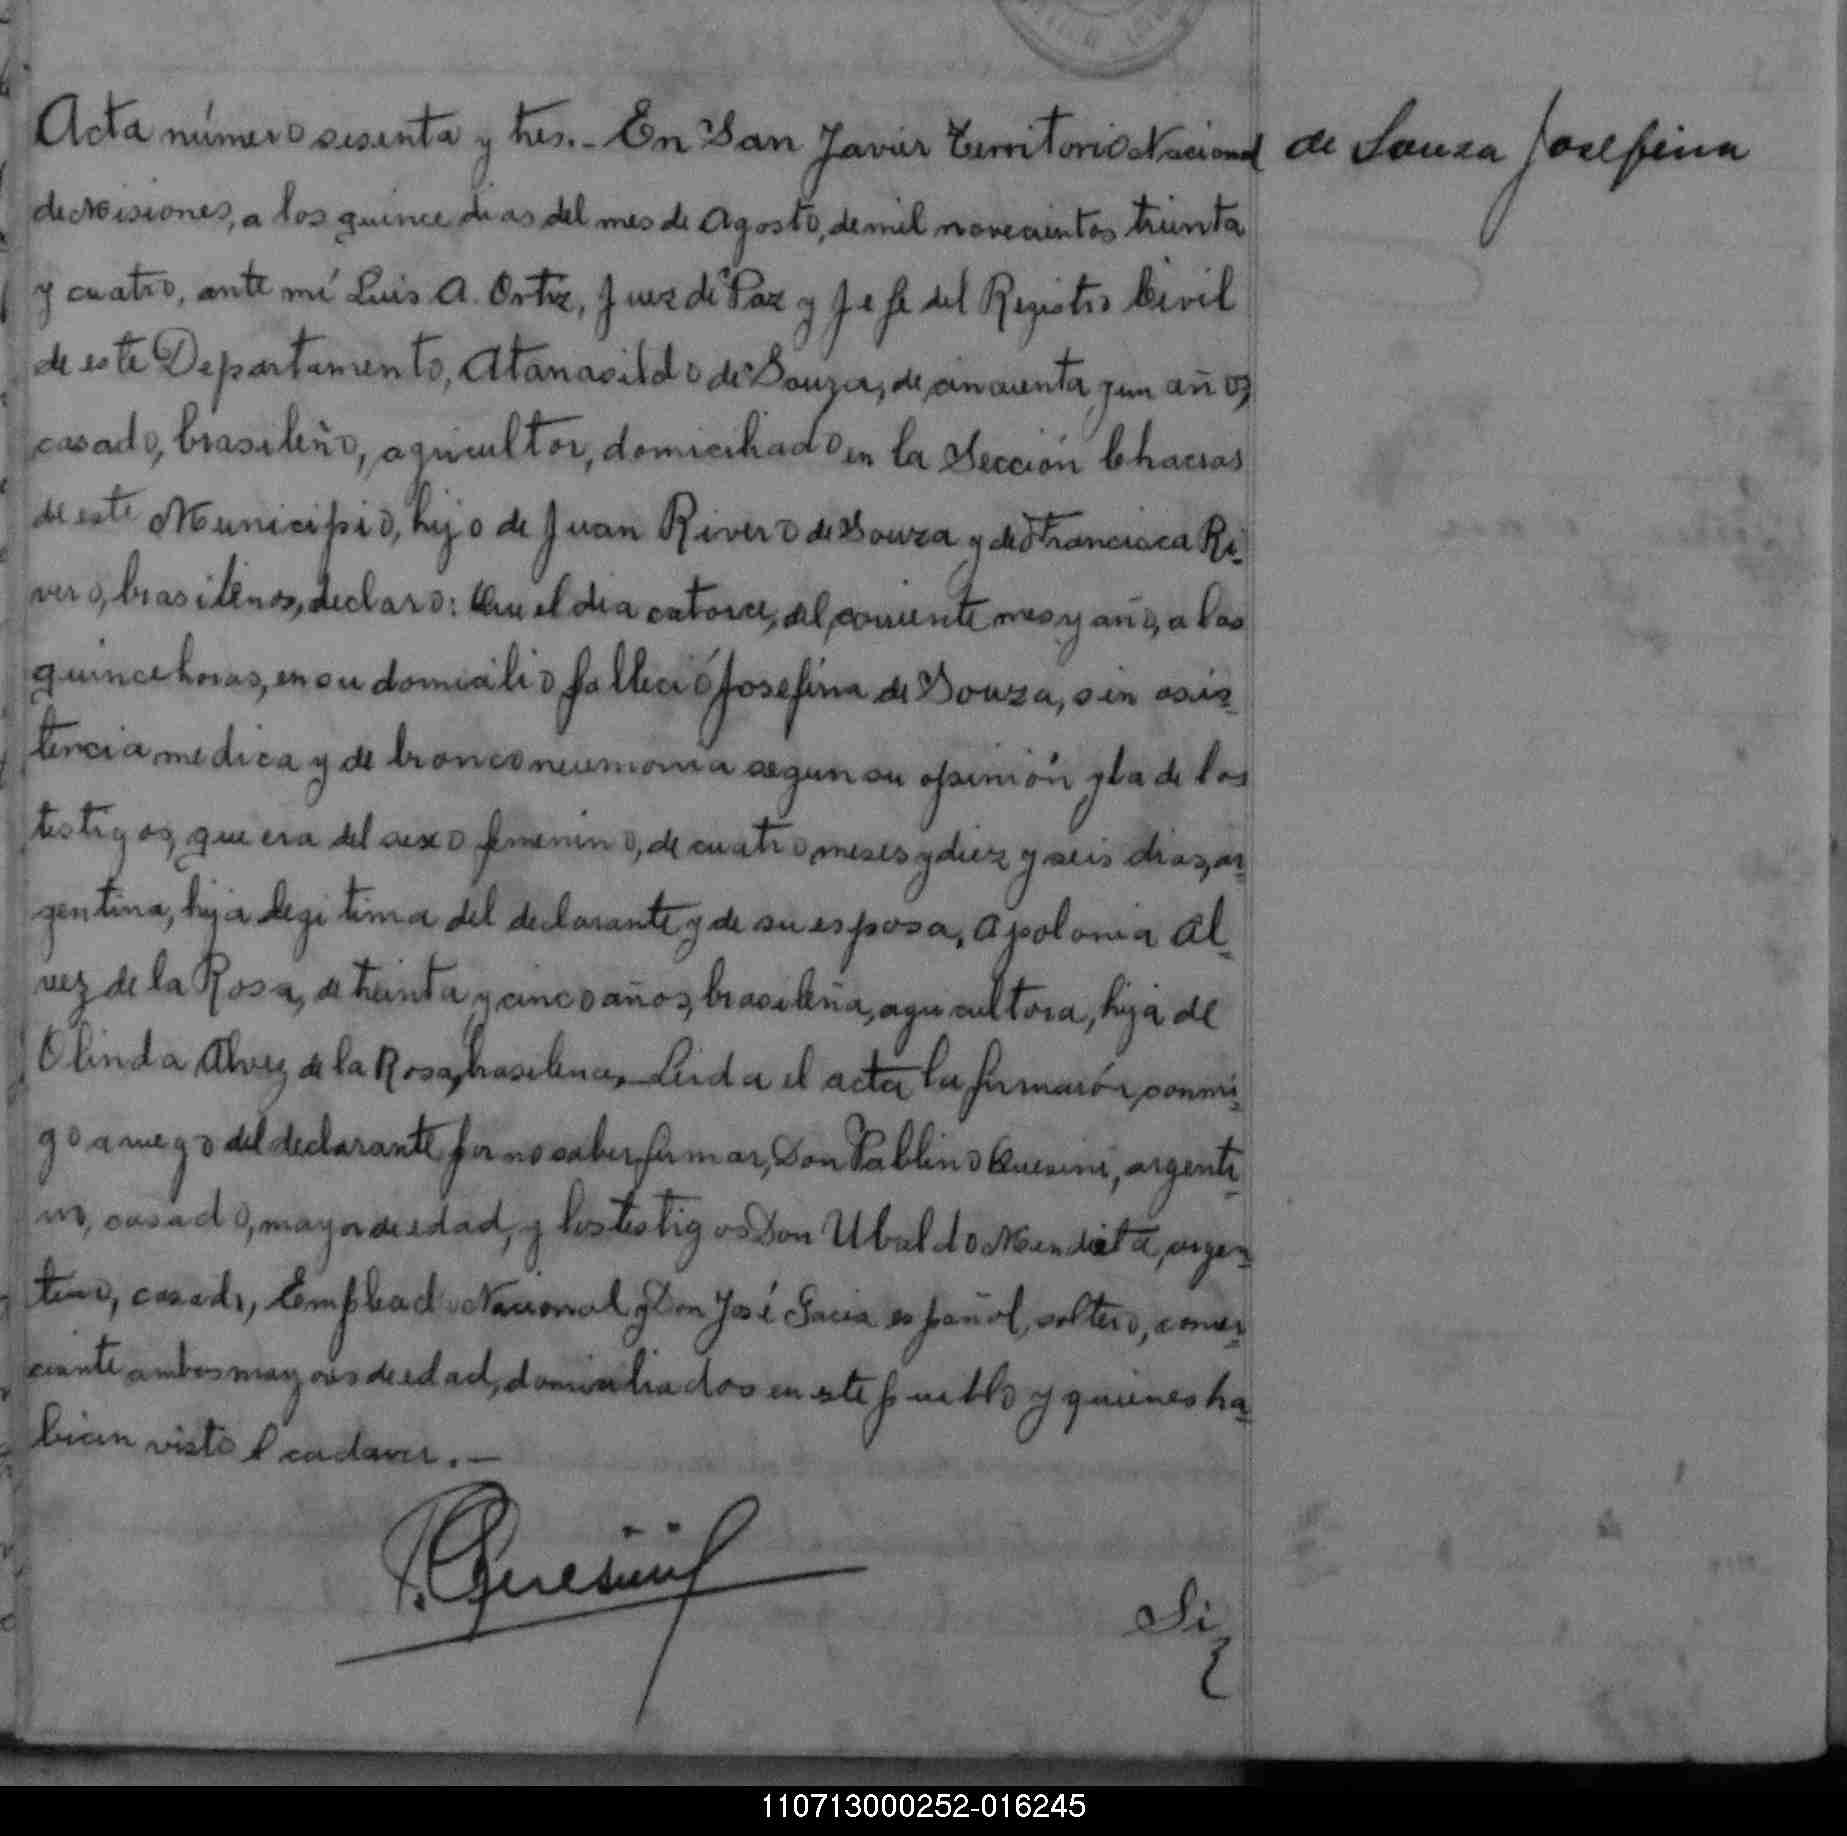 Acta número sesenta y tres.- En San Javier Territorio Nacional
de Souza Josefina
de Misiones, a los quince dias del mes de Agosto, de mil novecientos treinta
y cuatro, ante mí Luis A. Ortiz, Juez de Paz y Jefe del Registro Civil
de este Departamento, Atanasildo de Souza, de cincuenta y un años,
casado, brasileño, agricultor, domiciliado en la Sección Chacras
de este Municipio, hijo de Juan Rivero de Souza y de Francisca Ri-
vero, brasileños, declaro: Que el dia catorce, del corriente mes y año, a las
quince horas, en su domicilio falleció Josefina de Souza, sin asis-
tencia medica y de bronconeumonia segun su opinión y la de los
testigos, que era del sexo femenino, de cuatro meses y diez y seis dias, ar-
gentina, hija legitima del declarante y de su esposa, Apolonia Al-
vez de la Rosa, de treinta y cinco años, brasileña, agricultora, hija de
Olinda Alvez de la Rosa, brasilena.- Leida el acta la firmarón, conmi-
go a ruego del declarante por no saber firmar, Don Pablino Quesini, argenti-
no, casado, mayor de edad, y los testigos Don Ubaldo Mendieta, argen-
tino, casado, Empleado Nacional y Don José Gacia español, soltero, comer-
ciante ambos mayores de edad, domiciliados en este pueblo y quienes ha-
bian visto el cadaver.-
Si